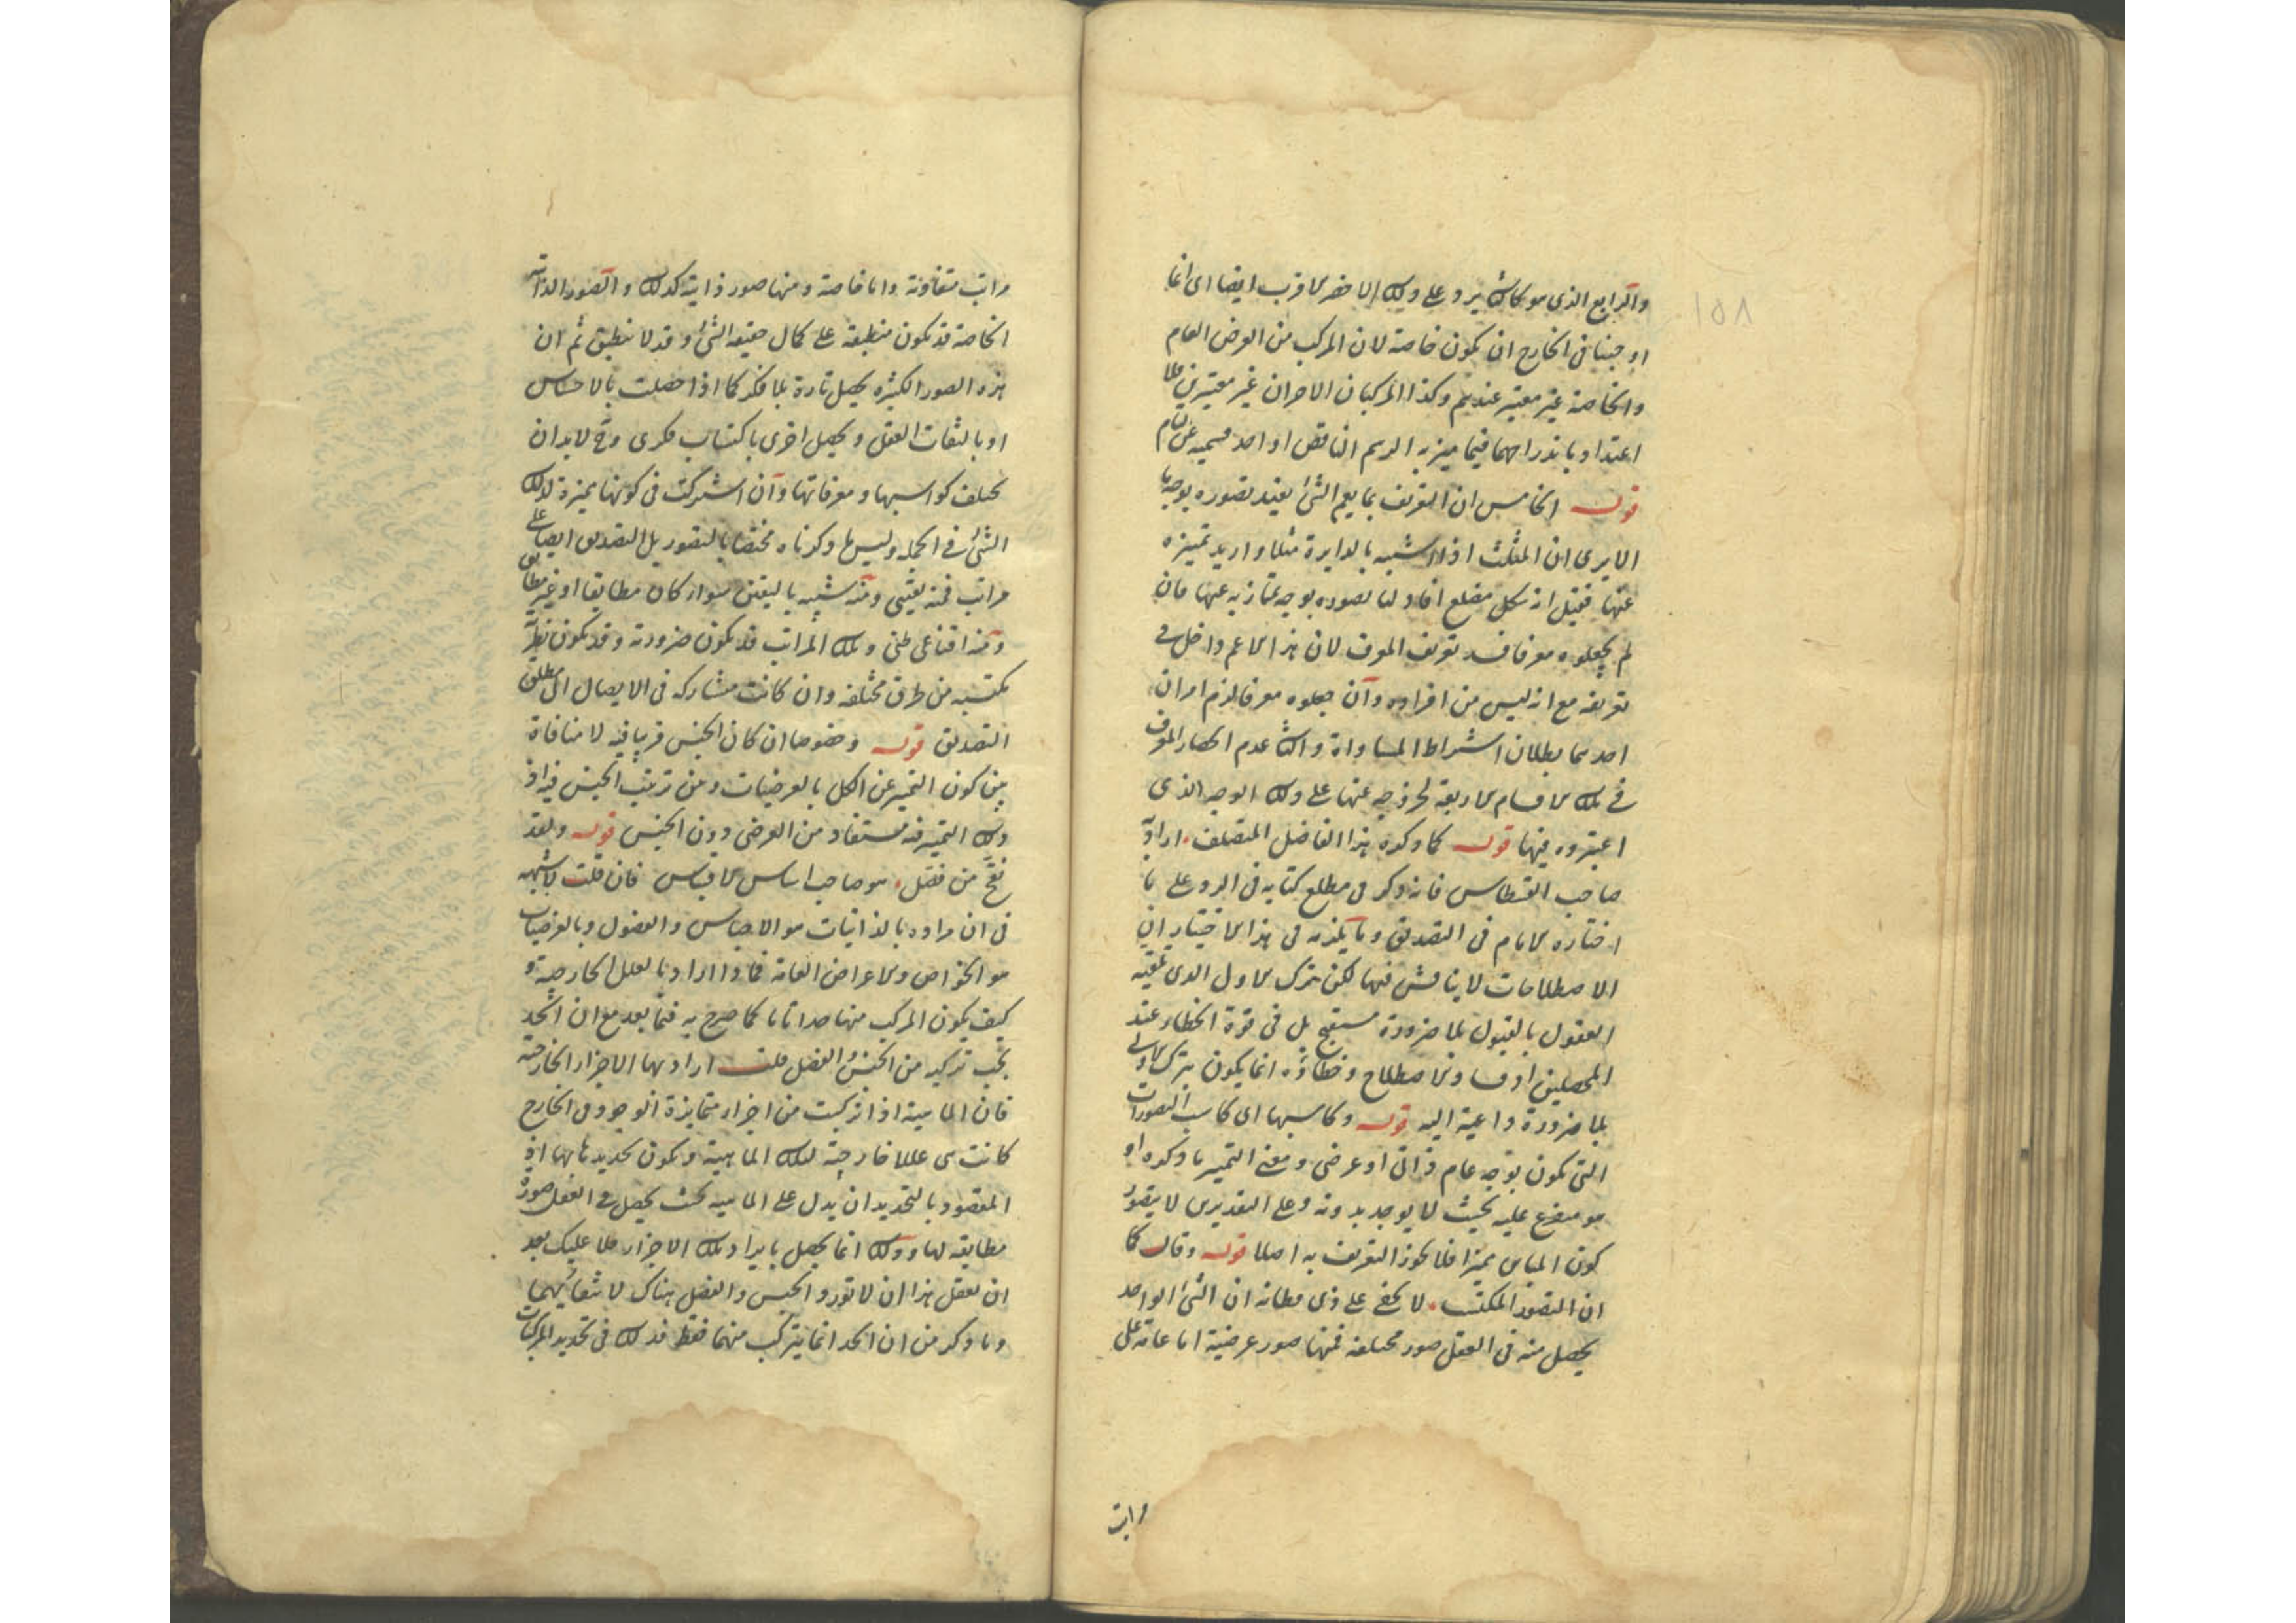 والرابع الذي هو كالثالث يرد على ذلك الاخير لاقرب ايضا اى انما
اوجبنا في الخارج ان يكون خاصة لان المركب من العرض العام
والخاصة غير معتبر عندهم وكذا المركبان الاخران غير معتبرين فلا
اعتداد باندراجهما فيما ميز به الرسم الناقص او احد قسميه عن التام
قوله الخامس ان التعريف بما يعم الشئ يفيد تصوره بوجه ما
الا يرى ان المثلث اذا اشتبه بالدايرة مثلا واريد تميزه
عنها فقيل انه شكل مضلع افاد لنا تصوره بوجه يمتاز به عنها فان
لم يجعلوه معرفا فسد تعريف المعرف لان هذا الاعم داخل في
تعريفه مع انه ليس من افراده وان جعلوه معرفا لزم امران
احدهما بطلان اشتراط المساواة والثانى عدم انحصار المعرف
في تلك الاقسام الاربعة لخروجه عنها على ذلك الوجه الذى
اعتبروه فيها قوله كما ذكره هذا الفاضل المتصلف اراد به
صاحب القسطاس فانه ذكر في مطلع كتابه في الرد على ما
اختاره الامام في التصديق وما يلزمه في هذا الاختيار ان
الاصطلاحات لا يناقش فيها لكن ترك الاول الذى تلقته
العقول بالقبول بلا ضرورة مستقبح بل في قوة الخطاء عند
المحصلين اذ فساد الاصطلاح وخطاؤه انما يكون بترك الاولى
بلا ضرورة داعية اليه قوله وكاسبها اى كاسب التصورات
التى تكون بوجه عام ذاتى او عرضى ومعنى التميز ما ذكره او
هو متفرع عليه بحيث لا يوجد بدونه وعلى التقديرين لا يتصور
كون المباين مميزا فلا يجوز التعريف به اصلا قوله وقال كما
ان التصور المكتسب لا يخفى على ذى فطانة ان الشئ الواحد
يحصل منه في العقل صور مختلفة فمنها صور عرضية اما عامة على
مراتب
مراتب متفاوتة واما خاصة ومنها صور ذاتية كذلك والصور الذاتية
الخاصة قد تكون منطبقة على كمال حقيقة الشئ وقد لا تنطبق ثم ان
هذه الصور الكثيرة يحصل تارة بلا فكر كما اذا حصلت بالاحساس
او بالتفات العقل ويحصل اخرى باكتساب فكرى وح لابد ان
يختلف كواسبها ومعرفاتها وان اشتركت في كونها مميزة لذلك
الشئ في الجملة وليس ما ذكرناه مختصا بالتصور بل التصديق ايضا على
مراتب فمنه يقينى ومنه شبيه باليقين سواء كان مطابقا او غير مطابق
ومنه اقناعى ظنى وتلك المراتب قد تكون ضرورية وقد تكون نظرية
مكتسبة من طرق مختلفة وان كانت متشاركة في الايصال الى مطلق
التصديق قوله وخصوصا ان كان الجنس قريبا فيه لا منافاة
بين كون التميز عن الكل بالعرضيات وبين ترتيب الجنس فيه اذ
ذلك التميز فيه مستفاد من العرضى دون الجنس قوله ولقد
نقح من فصل هو صاحب اساس الاقتباس فان قلت لا شبهة
في ان مراده بالذاتيات هو الاجناس والفصول وبالعرضيات
هو الخواص والاعراض العامة فماذا اراد بالعلل الخارجية و
كيف يكون المركب منها حدا تاما كما صرح به فيما بعد مع ان الحد
يجب تركيبه من الجنس والفصل قلت اراد بها الاجزاء الخارجية
فان الماهية اذا تركبت من اجزاء متمايزة الوجود في الخارج
كانت هى عللا خارجية لتلك الماهية ويكون تحديدها بها اذ
المقصود بالتحديد ان يدل على الماهية بحيث يحصل في العقل صورة
مطابقة لها وذلك انما يحصل بايراد تلك الاجزاء فلا عليك بعد
ان تعقل هذا ان لا تورد الجنس والفصل هناك لانتفائهما
وما ذكر من ان الحد انما يتركب منهما فقط فذلك في تحديد المركبات